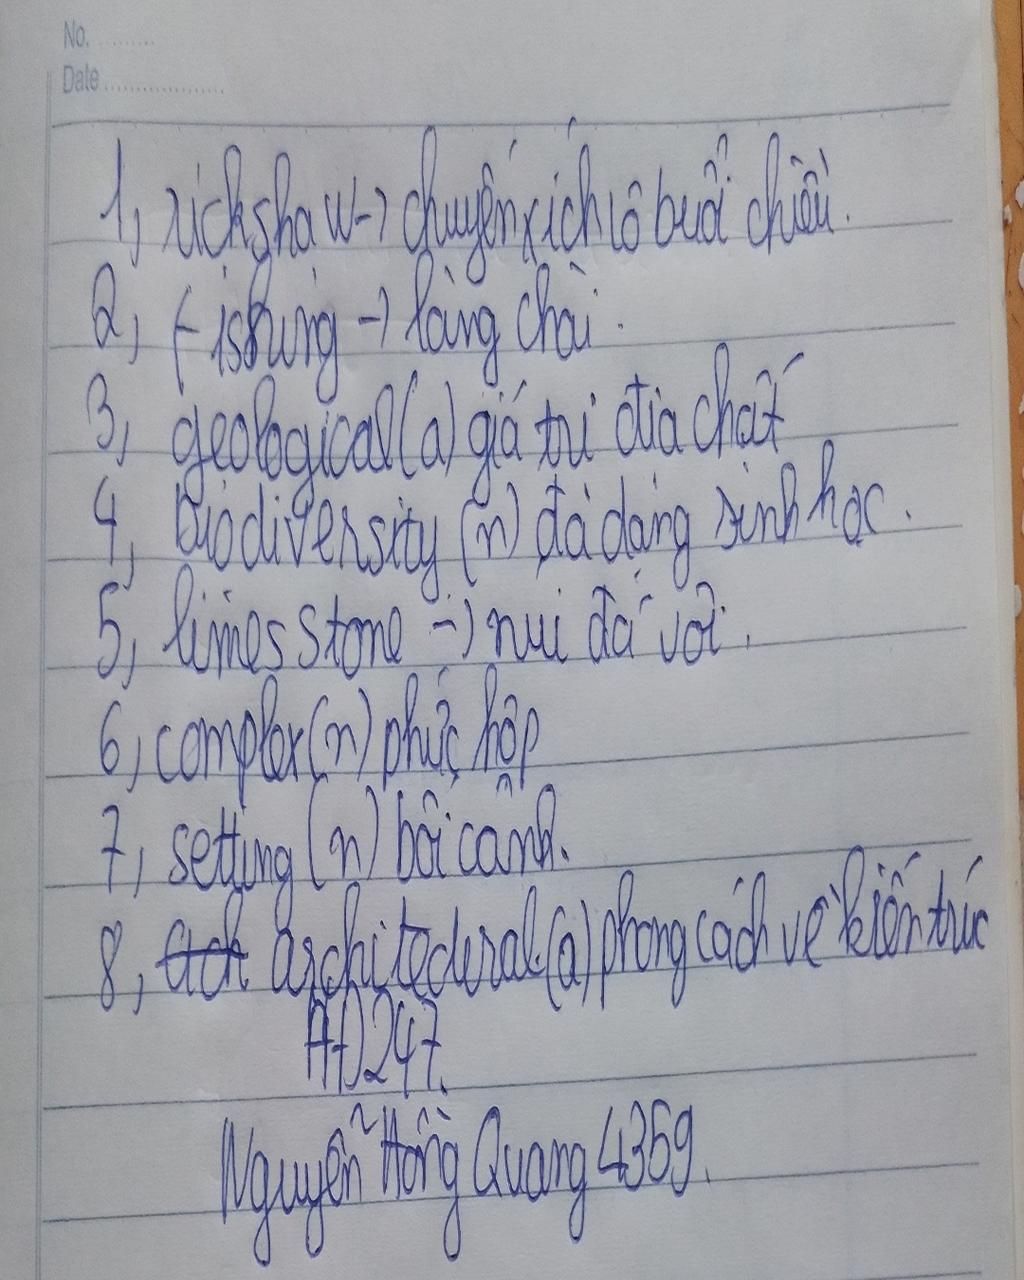 No. ..........
Date ....................
1, rickshaw -> chuyến xích lô buổi chiều.
2, fishing -> làng chài.
3, geological (a) giá trị địa chất
4, biodiversity (n) đa dạng sinh học.
5, limes stone -> núi đá vôi.
6, complex (n) phức hợp
7, setting (n) bối cảnh.
8, architectural (a) phong cách về kiến trúc
AD247.
Nguyễn Hồng Quang 4369.